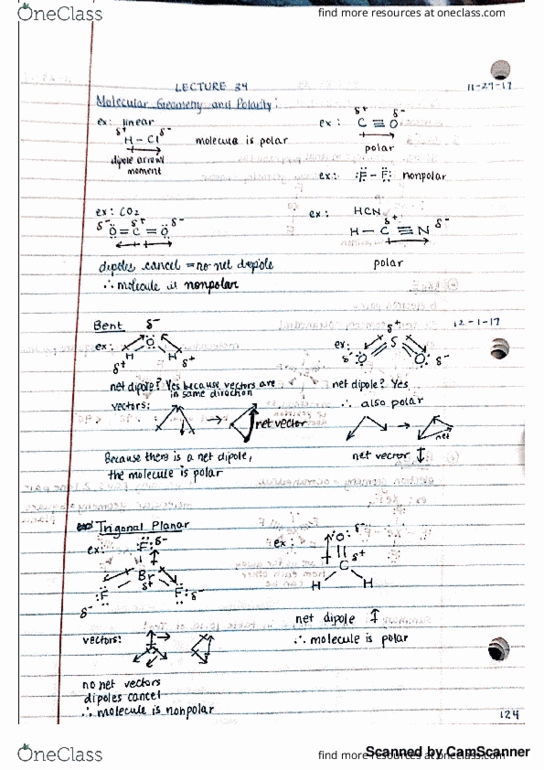 OneClass
find more resources at oneclass.com
LECTURE 34
11-29-17
Molecular Geometry and Polarity:
ex: linear
δ+ δ-
H - Cl
molecule is polar
dipole arrow
moment
ex:
δ+ δ-
C ≡ O
polar
ex: :F - F: nonpolar
ex: CO2
δ- δ+ δ-
O = C = O
dipoles cancel = no net dipole
∴ molecule is nonpolar
ex: HCN
δ+ δ-
H - C ≡ N
polar
Bent
12-1-17
ex:
δ-
O
H H
δ+ δ+
net dipole? Yes because vectors are
in same direction
vectors:
net vector
Because there is a net dipole,
the molecule is polar
ex:
δ+
S
δ- O O δ-
net dipole? Yes
∴ also polar
net
net vector
Trigonal Planar
ex:
:F: δ-
Br
δ+
:F :F: δ-
δ-
vectors:
no net vectors
dipoles cancel
∴ molecule is nonpolar
ex:
:O: δ-
C δ+
H H
net dipole
∴ molecule is polar
124
Scanned by CamScanner
OneClass
find more resources at oneclass.com